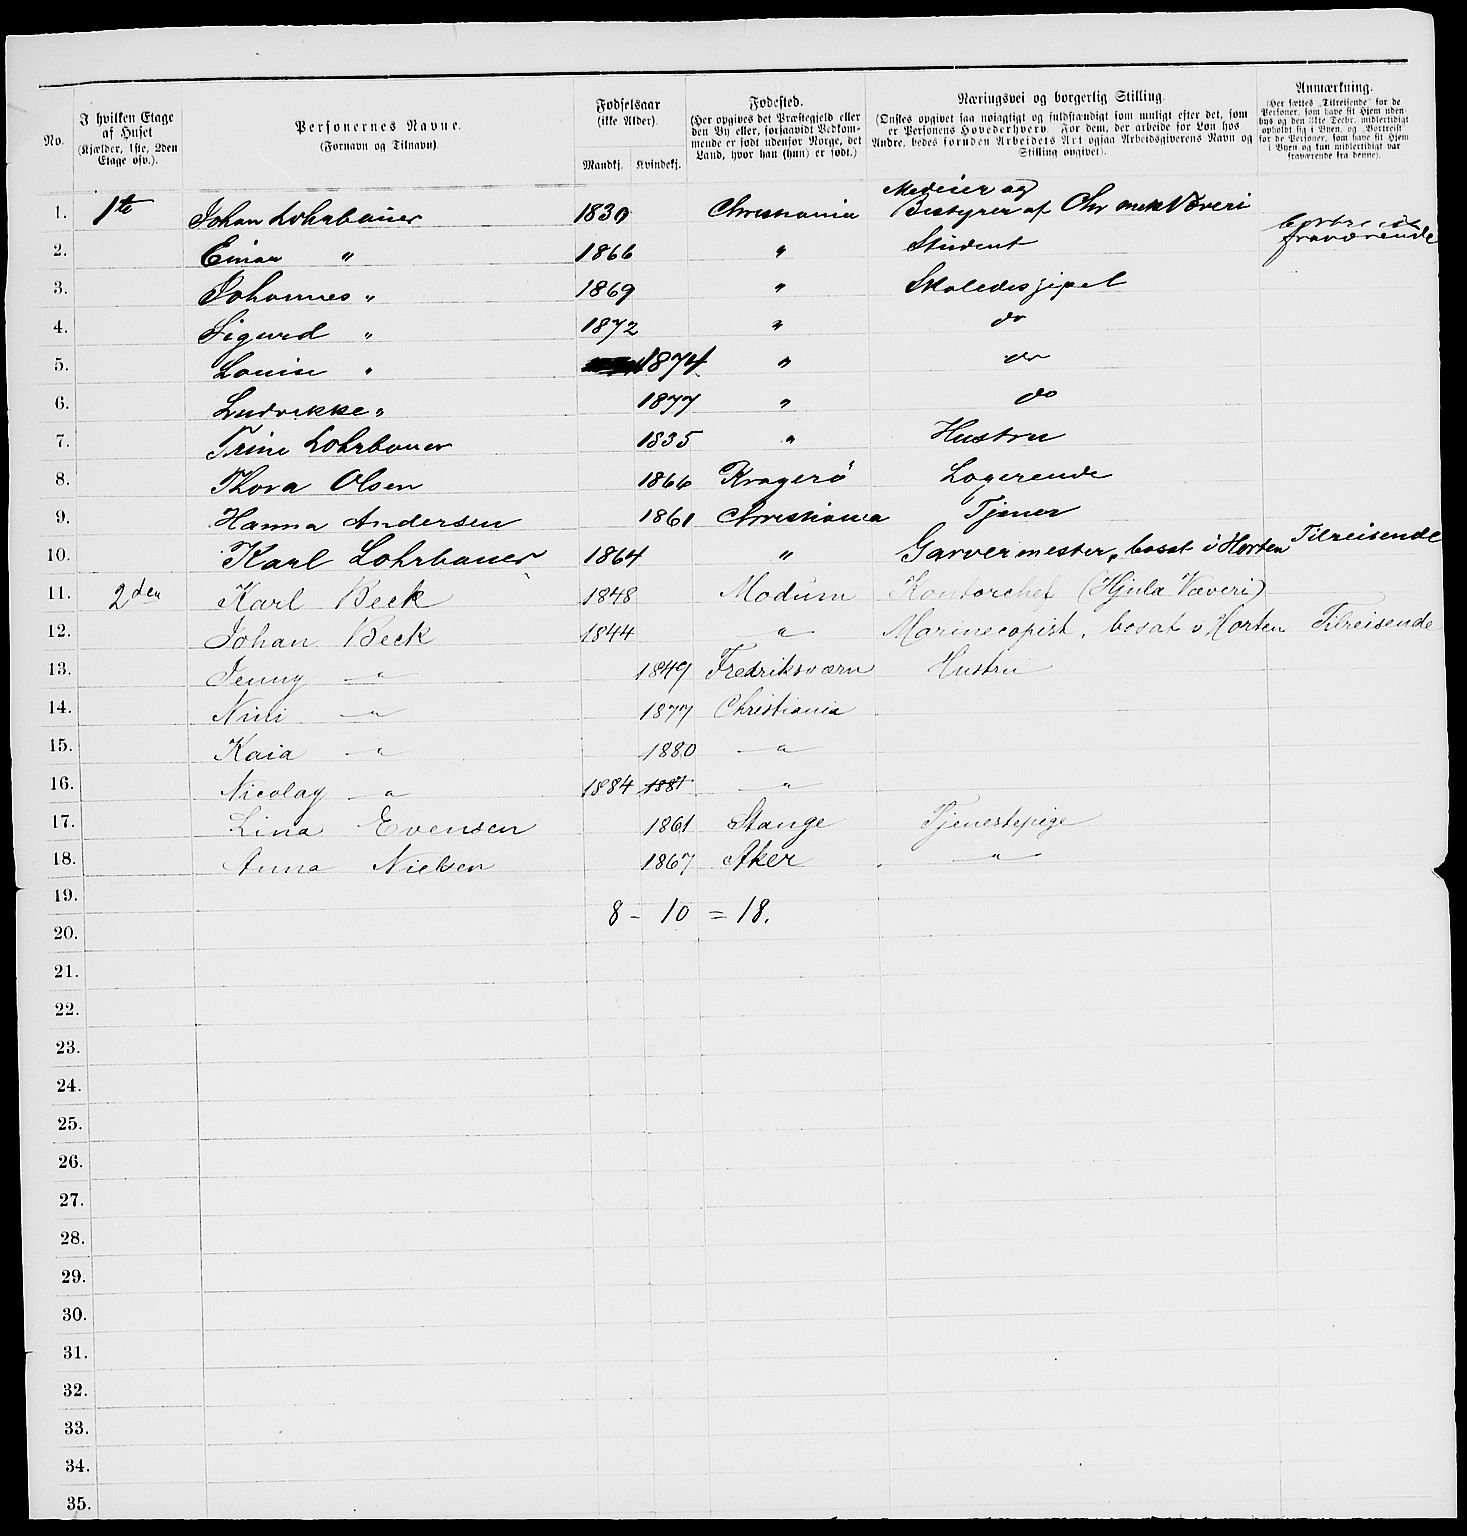 No.
I hvilken Etage af Huset (Kjælder, 1ste, 2den Etage osv.).
Personernes Navne. (Fornavn og Tilnavn)
Fødselsaar (ikke Alder). Mandkj. Kvindekj.
Fødested. (Her opgives det Præstegjeld eller den By eller, forsaavidt Vedkommende er født udenfor Norge, det Land, hvor han (hun) er født.)
Næringsvei og borgerlig Stilling. (Ønskes opgivet saa nøiagtigt og fuldstændigt som muligt efter det, som er Personens Hovederhverv. For dem, der arbeide for Løn hos Andre, bedes foruden Arbeidets Art ogsaa Arbeidsgiverens Navn og Stilling opgivet).
Anmærkning. (Her sættes „Tilreisende“ for de Personer, som have sit Hjem udenbys og den 31te Decbr. midlertidigt opholdt sig i Byen, og „Bortreist“ for de Personer, som have sit Hjem i Byen og kun midlertidigt var fraværende fra denne).
1. 1te Johan Lohrbauer 1830 Christiania Medeier og Bestyrer af Chr mek Væveri
2. Einar " 1866 " Student bortreist fraværende
3. Johannes " 1869 " Skoledisjipel
4. Sigurd " 1872 " do
5. Louise " 1874 " do
6. Ludvikke " 1877 " do
7. Trine Lohrbauer 1835 " Hustru
8. Thora Olsen 1866 Kragerö Logerende
9. Hanna Andersen 1861 Christiania Tjener
10. Karl Lohrbauer 1864 " Garvermester, bosat i Horten Tilreisende
11. 2den Karl Beck 1848 Modum Kontorchef (Hjula Væveri)
12. Johan Beck 1844 " Marinecopist, bosat i Horten Tilreisende
13. Jenny " 1849 Fredriksværn Hustru
14. Nini " 1877 Christiania
15. Kaia " 1880 "
16. Nicolay " 1884 1884 "
17. Lina Evensen 1861 Stange Tjenestepige
18. Anna Nielsen 1867 Aker "
19.
8 - 10 = 18.
20.
21.
22.
23.
24.
25.
26.
27.
28.
29.
30.
31.
32.
33.
34.
35.